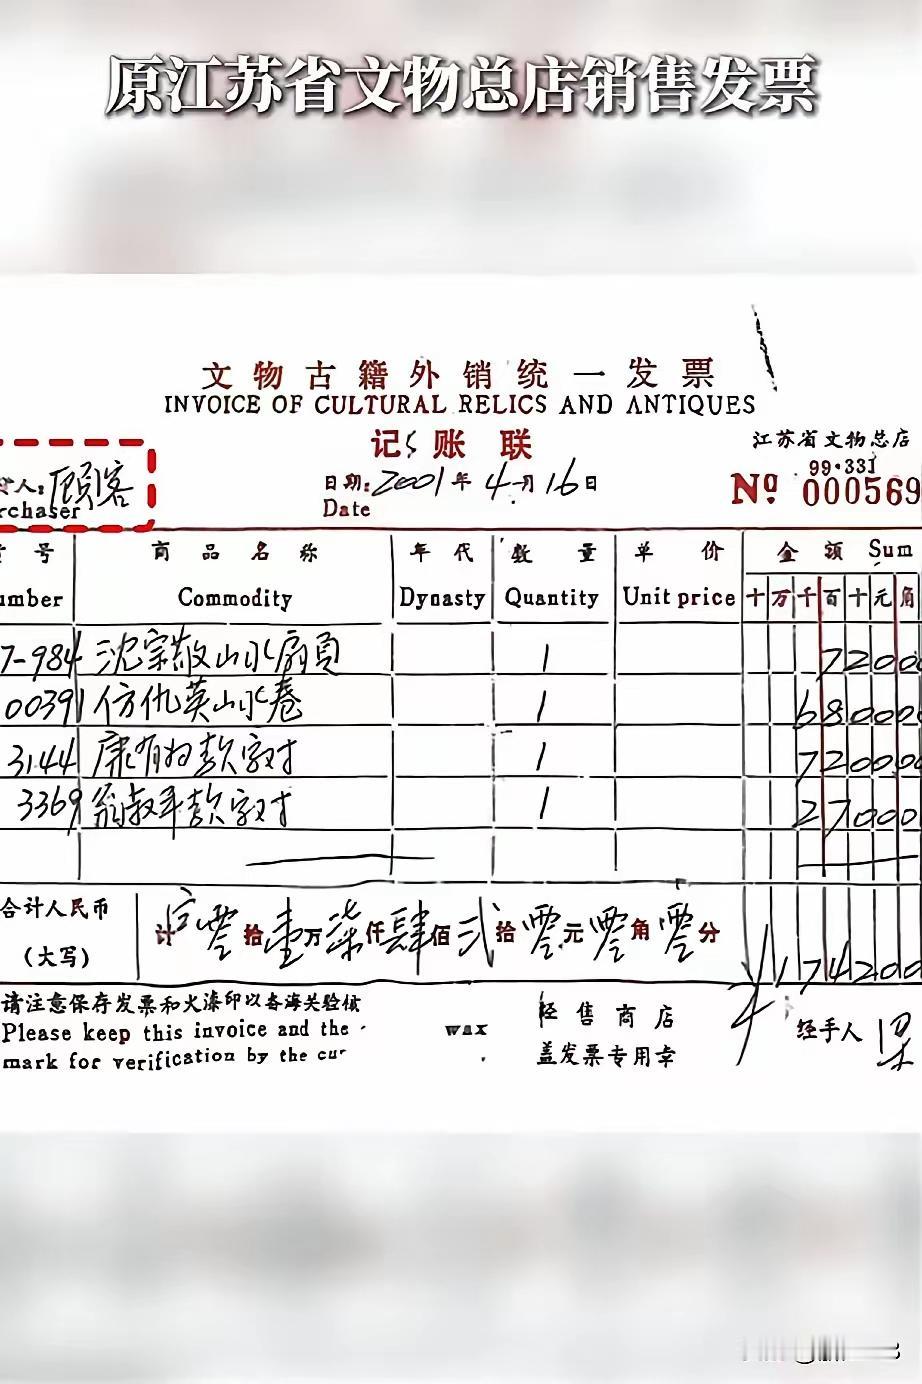 原江苏省文物总店销售发票
文物古籍外销统一发票
INVOICE OF CULTURAL RELICS AND ANTIQUES
记账联
江苏省文物总店
人:顾客
rchaser
日期: 2001年4月16日
Date
99·331
Nº 000569
号 商品名称 年代 数量 单价 金额 Sum
umber Commodity Dynasty Quantity Unit price 十万千百十元角
7-984 沈宗敬山水扇页 1 72000
00391 仿仇英山水卷 1 680000
3144 康有为款字对 1 720000
3369 翁叔平款字对 1 270000
合计人民币
(大写)
计 零拾壹万柒仟肆佰贰拾零元零角零分
¥174200
请注意保存发票和火漆印以备海关验核
Please keep this invoice and the wax
mark for verification by the cu
经售商店
盖发票专用章
经手人